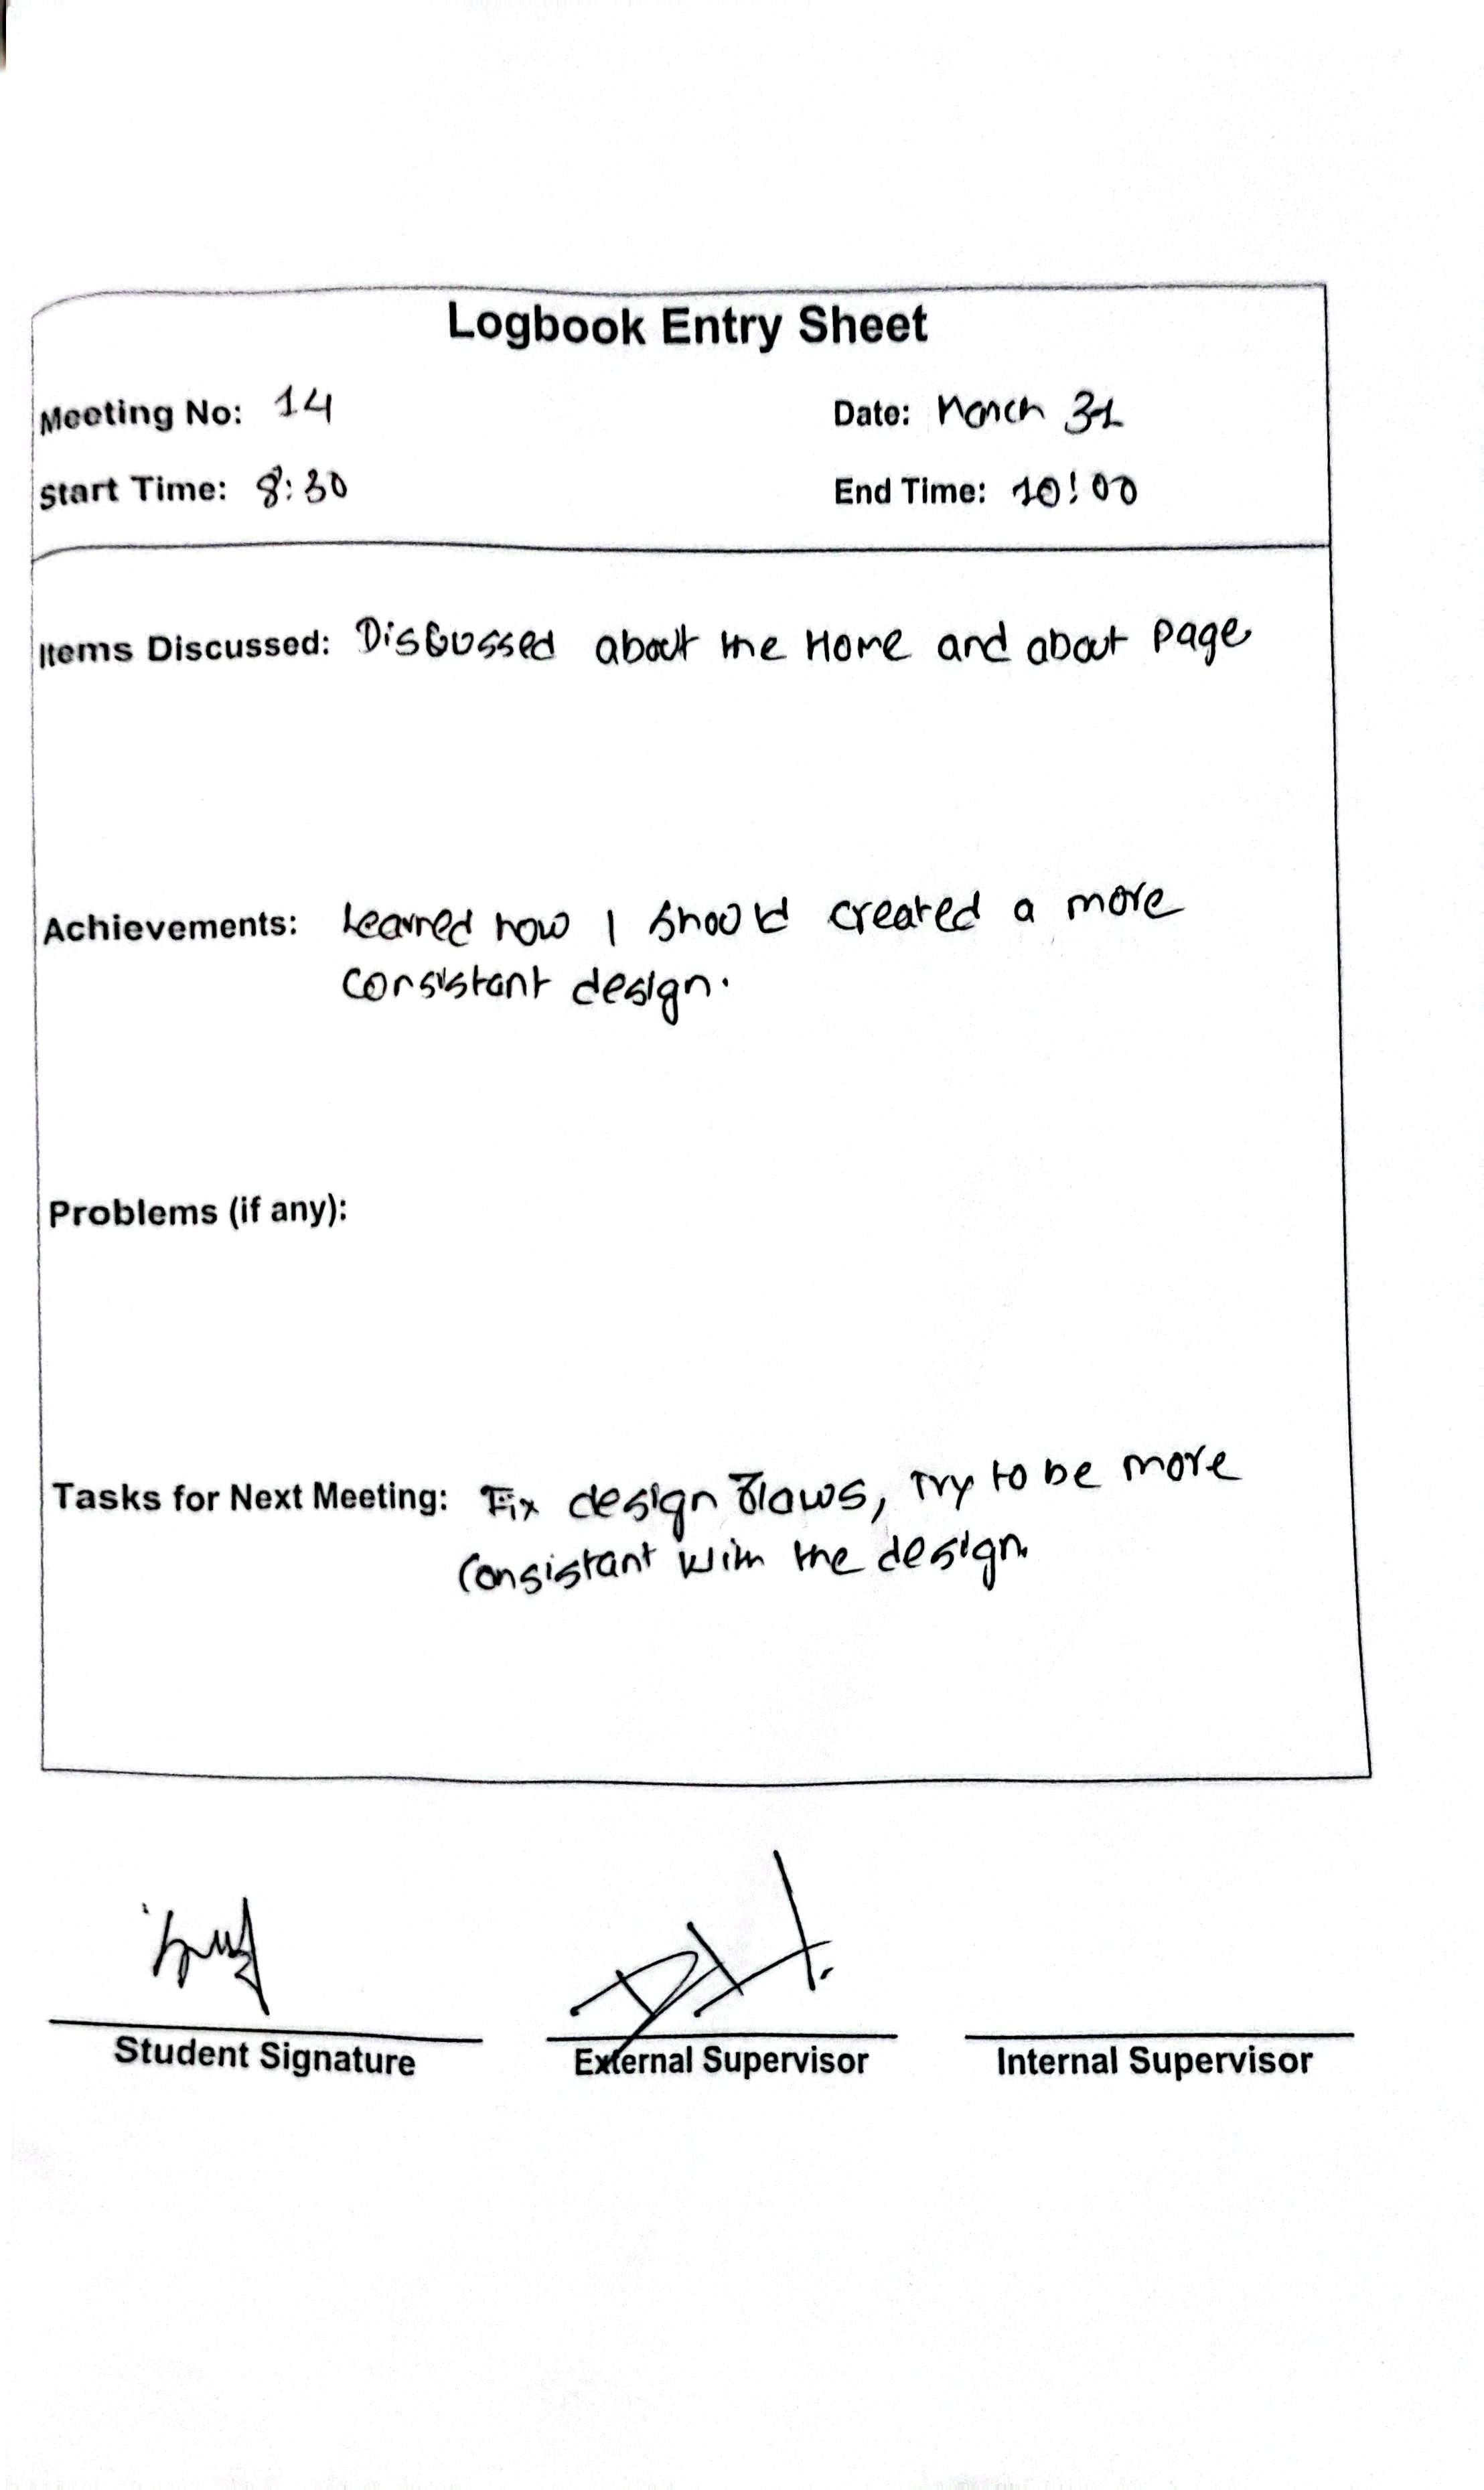 Logbook Entry Sheet
Meeting No: 14
Date: March 31
Start Time: 8:30
End Time: 10:00
Items Discussed: Discussed about the Home and about page
Achievements: Learned how I should created a more
consistant design.
Problems (if any):
Tasks for Next Meeting: Fix design flaws, Try to be more
consistant with the design.
Student Signature
External Supervisor
Internal Supervisor